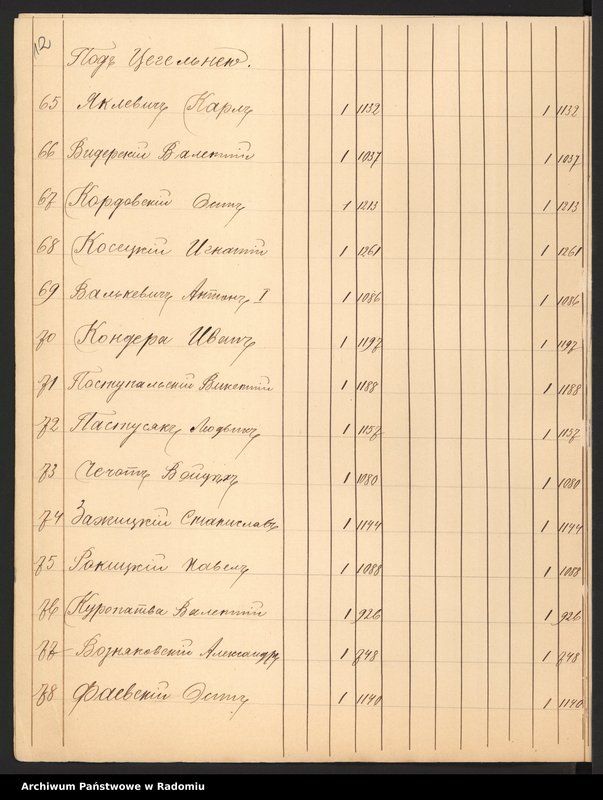 12
Подъ Цегельнею.
65 Яклевичъ Карлъ 1 1132 1 1132
66 Видерскій Валентій 1 1037 1 1037
67 Кордовскій 1 1213 1 1213
68 Косецкій Игнатій 1 1261 1 1261
69 Валькевичъ Антонъ I 1 1086 1 1086
70 Кондера Иванъ 1 1197 1 1197
71 Поступальскій Викентій 1 1188 1 1188
72 Пастусякъ Людвикъ 1 1157 1 1157
73 Чечотъ Войцехъ 1 1080 1 1080
74 Зажицкій Станиславъ 1 1144 1 1144
75 Рокицкій Павелъ 1 1088 1 1088
76 Куропатва Валентій 1 926 1 926
77 Возняковскій Александръ 1 748 1 748
78 Фаевскій 1 1140 1 1140
Archiwum Państwowe w Radomiu